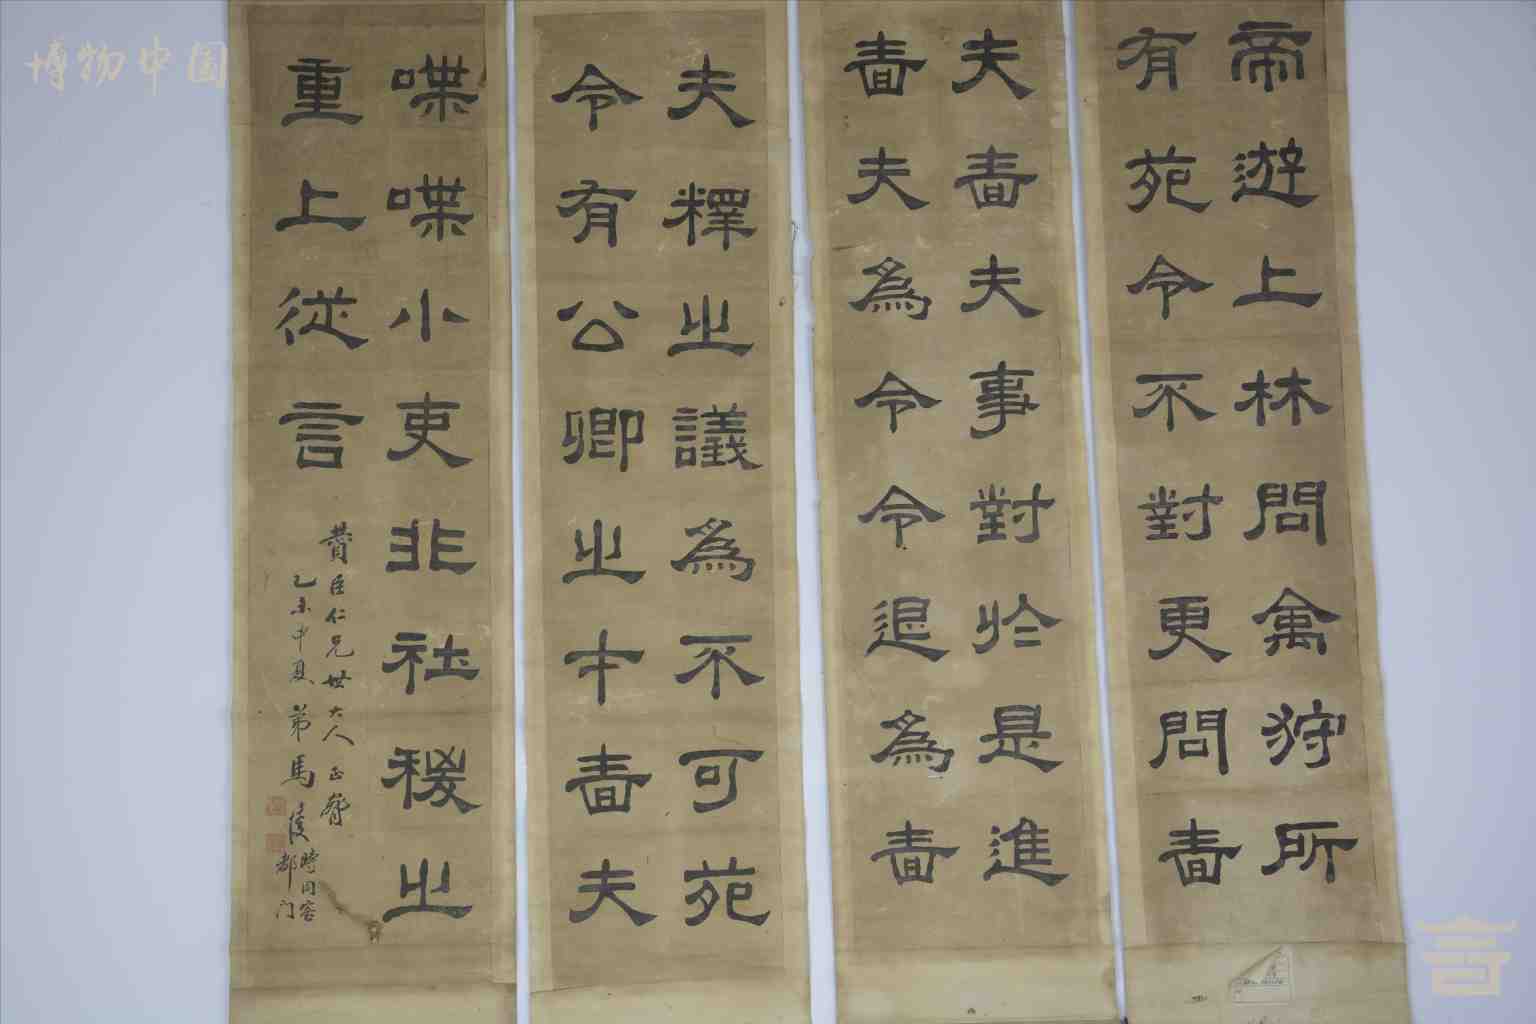 帝遊上林問禽狩所
有苑令不對更問嗇
夫嗇夫事對於是進
嗇夫為令令退為嗇
夫釋之議為不可苑
令有公卿之才嗇夫
喋喋小吏非社稷之
重上從言
臣仁兄世大人正
乙未中夏弟馬
時同客
都门
博物中国